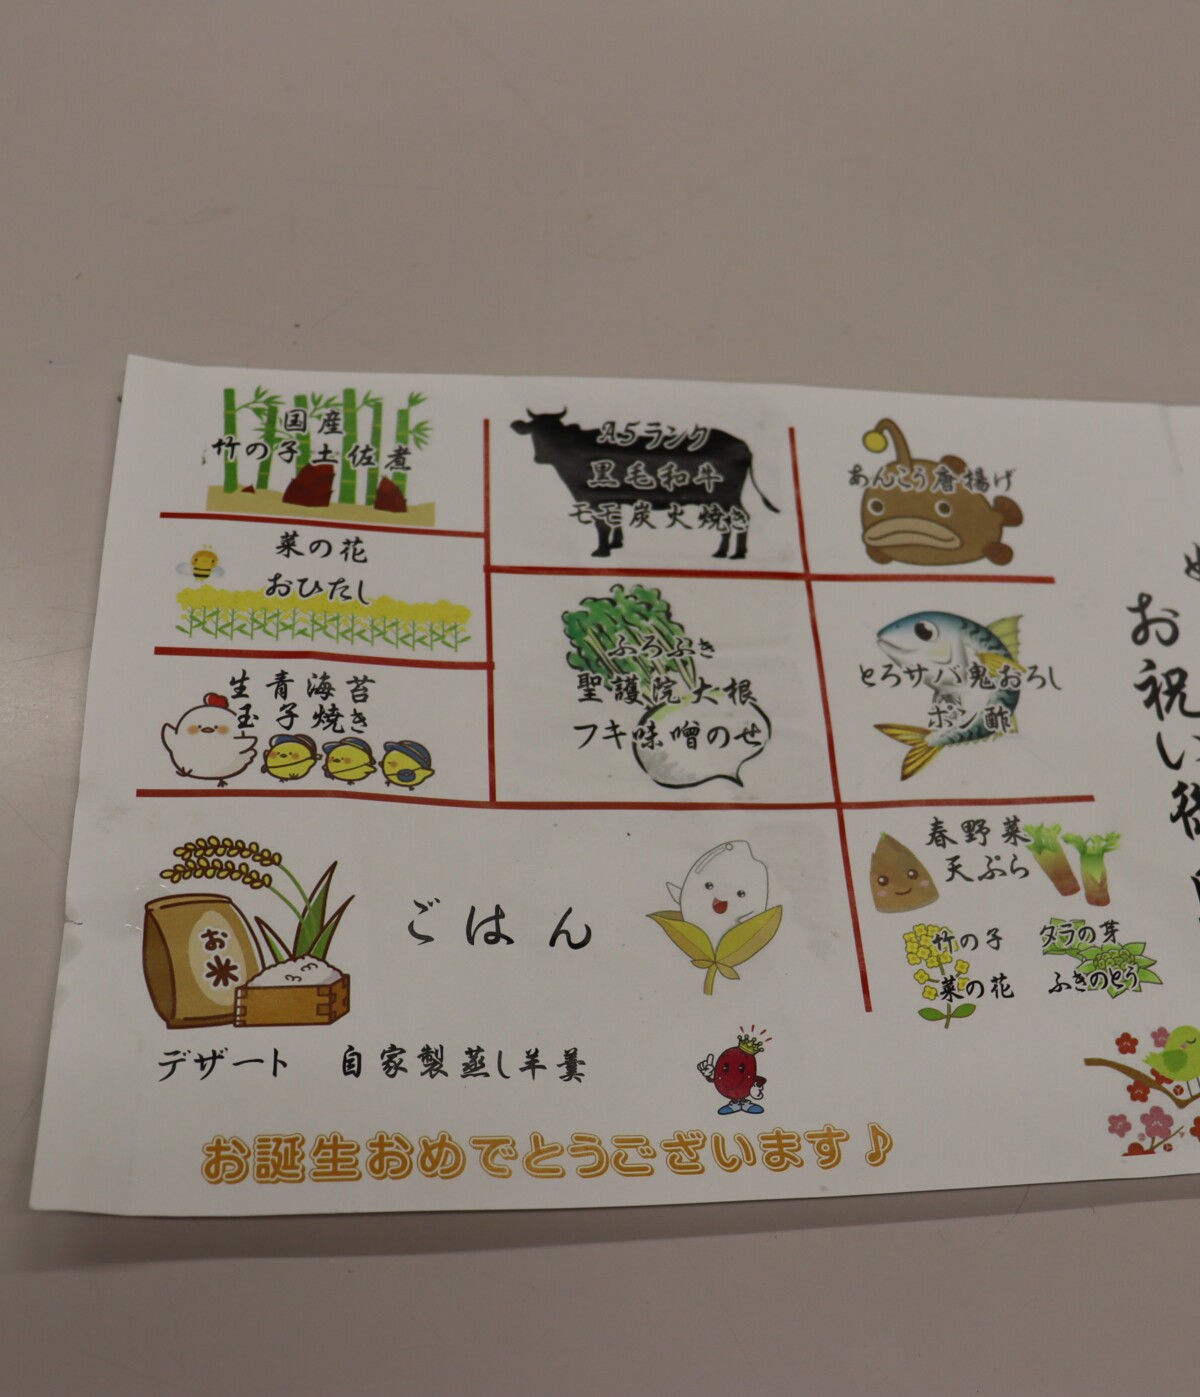 国産
竹の子土佐煮
菜の花
おひたし
生青海苔
玉子焼き
A5ランク
黒毛和牛
モモ炭火焼き
あんこう唐揚げ
ふろふき
聖護院大根
フキ味噌のせ
とろサバ鬼おろし
ポン酢
お米
ごはん
春野菜
天ぷら
竹の子
タラの芽
菜の花
ふきのとう
デザート 自家製蒸し羊羹
お誕生おめでとうございます♪
お祝い